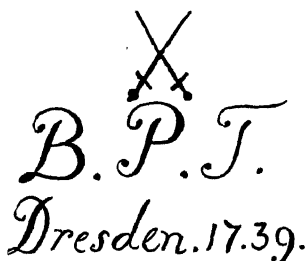 B.P.T.
Dresden.17.39.